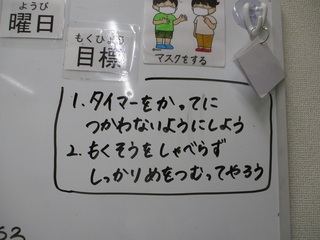 ようび
曜日
もくひょう
目標
マスクをする
1. タイマーをかってに
つかわないようにしよう
2. もくそうをしゃべらず
しっかりめをつむってやろう
53